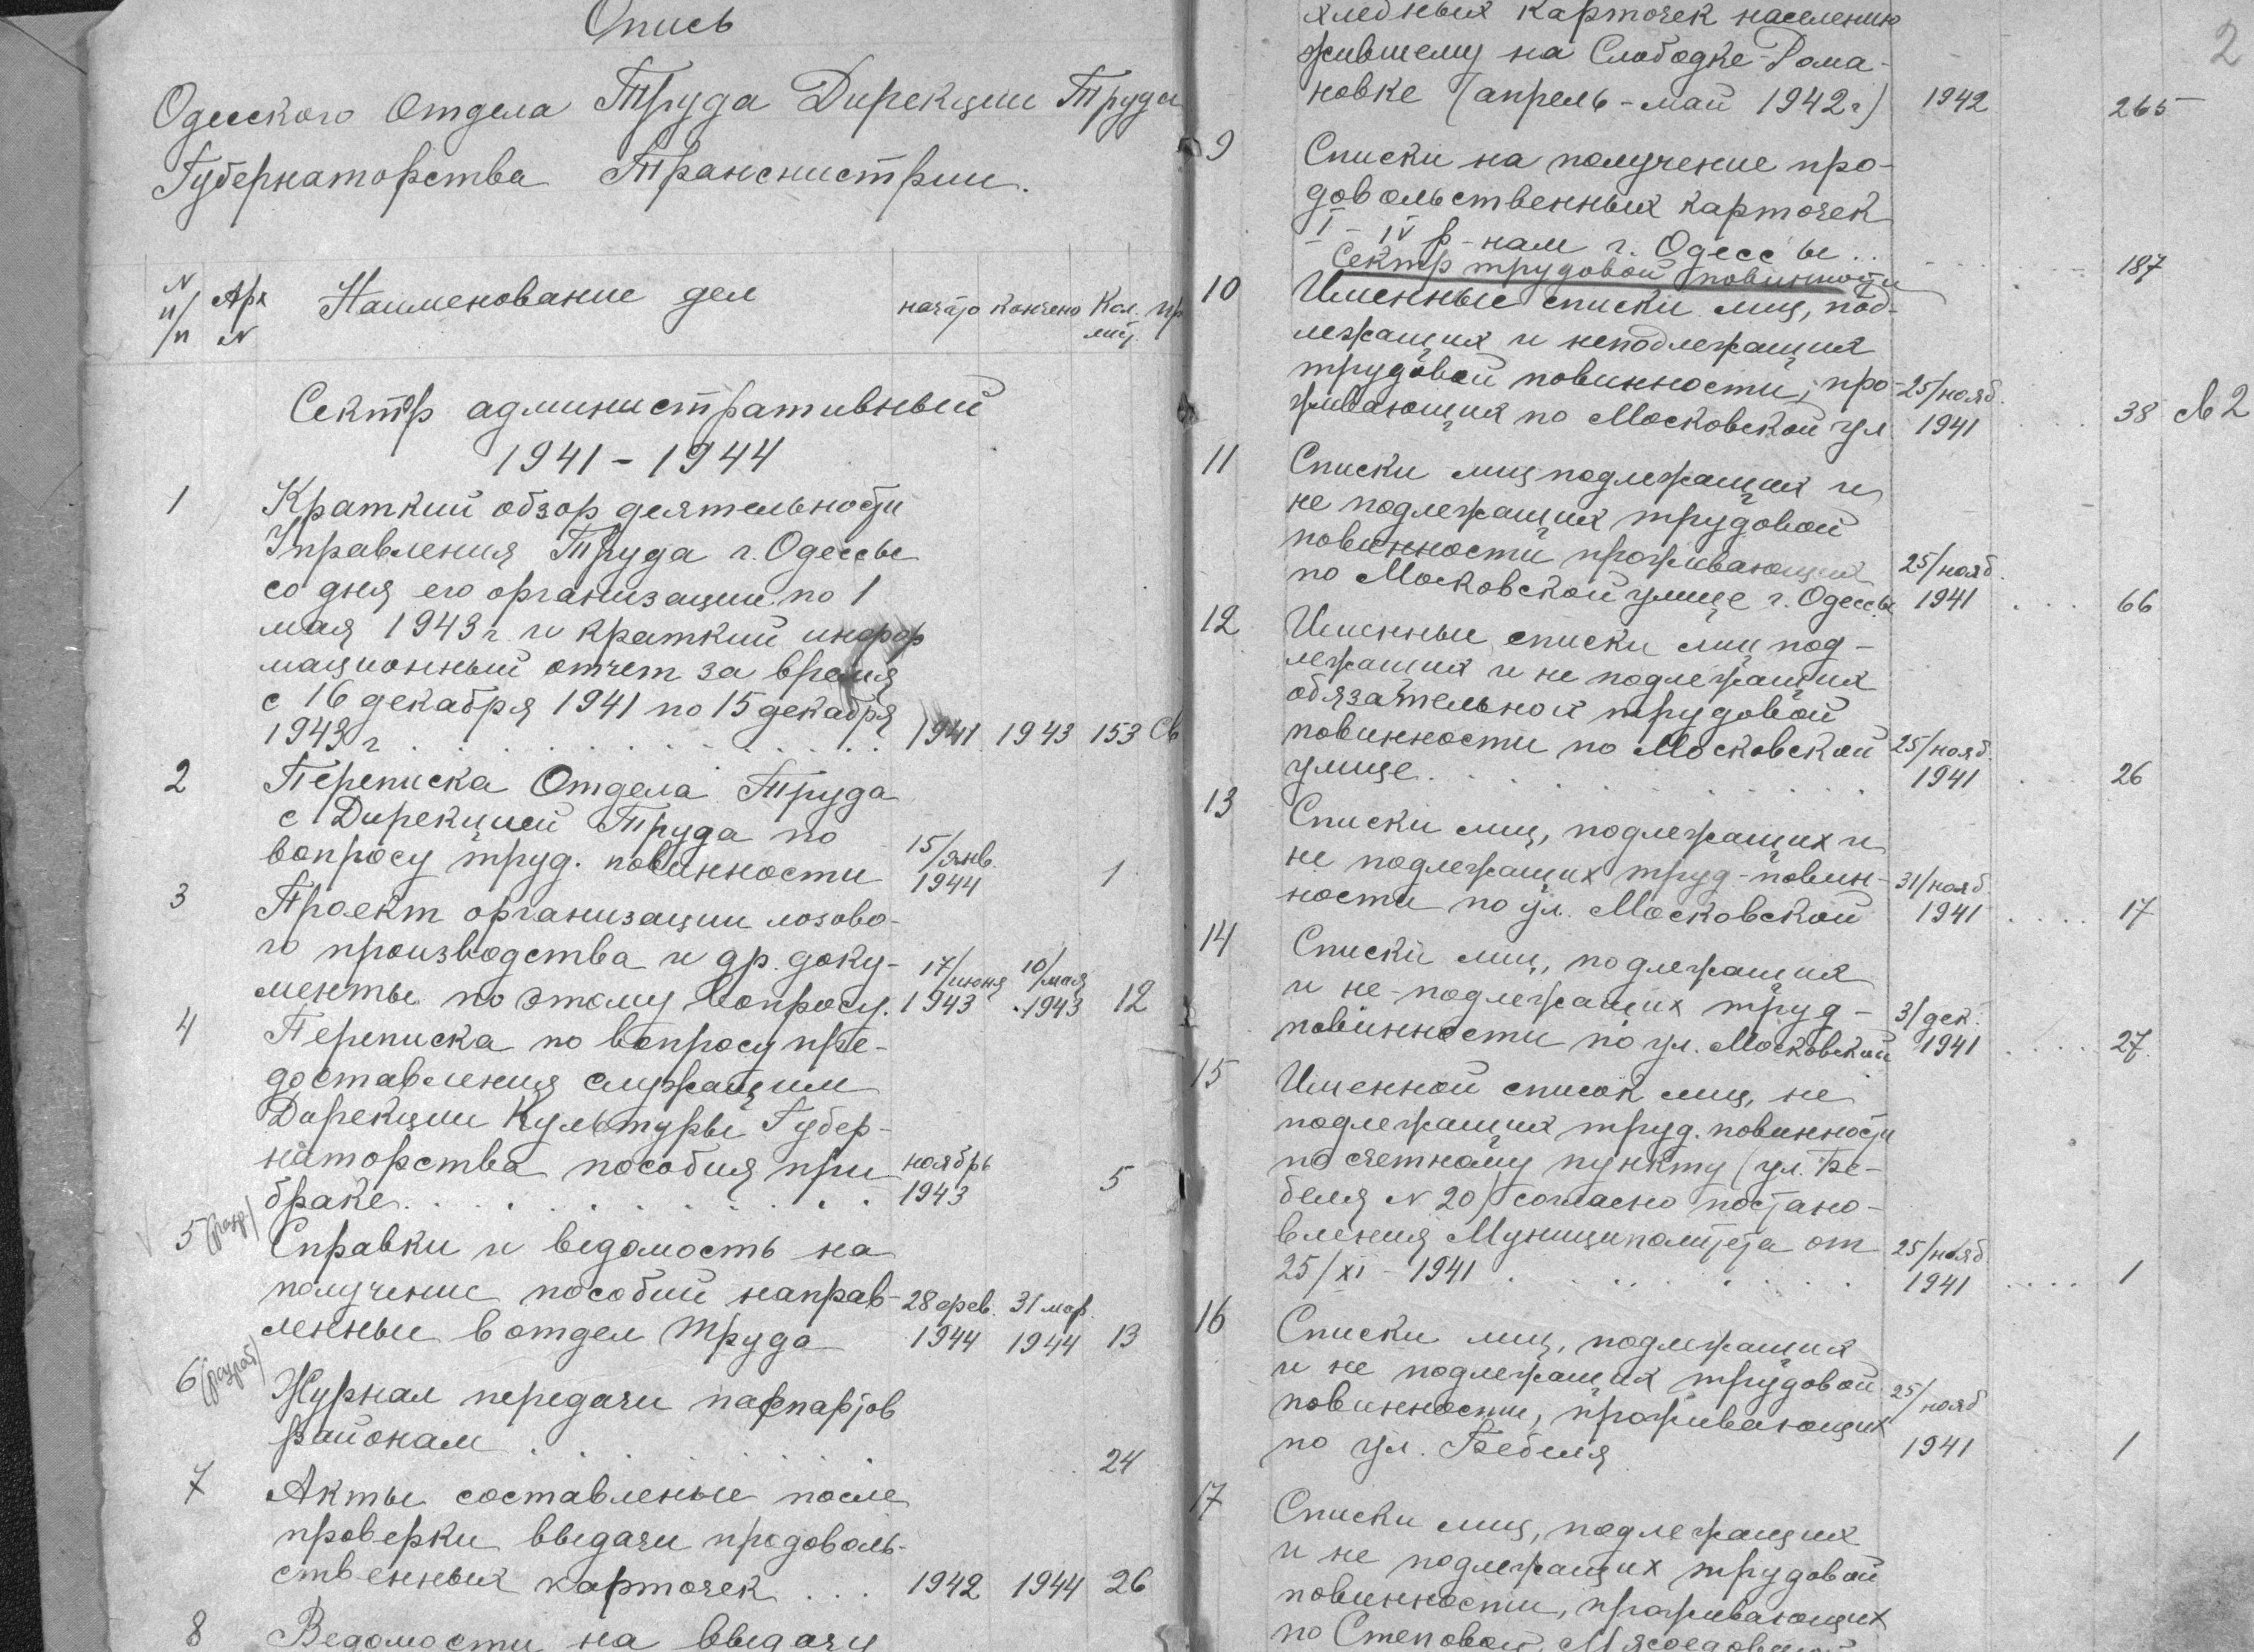 Опись
Одесского Отдела Труда Дирекции Труда
Губернаторства Транснистрии.
N п/п Арх N Наименование дел начато кончено Кол. лист. пр
Сектор административный
1941 - 1944
1 Краткий обзор деятельности
Управления Труда г. Одессы
со дня его организации по 1
мая 1943 г. и краткий инфор
мационный отчет за время
с 16 декабря 1941 по 15 декабря
1943 г. . . . . . . . . . . . 1941 1943 153 Св
2 Переписка Отдела Труда
с Дирекцией Труда по
вопросу труд. повинности 15/янв. 1944 1
3 Проект организации лозово-
го производства и др. доку-
менты по этому вопросу. 17/июня 1943 10/мая 1943 12
4 Переписка по вопросу пре-
доставления служащим
Дирекции Культуры Губер-
наторства пособия при
браке. . . . . . . . . . ноябрь 1943 5
5 (разр.) Справки и ведомость на
получение пособий направ-
ленные в отдел Труда 28 фев. 1944 31 мар. 1944 13
6 (разраб) Журнал передачи пафпартов
районам . . . . . . . . 24
7 Акты составленые после
проверки выдачи продоволь-
ственных карточек . . . 1942 1944 26
8 Ведомости на выдачу
2
хлебных карточек населению
жившему на Слободке-Рома-
новке (апрель - май 1942 г) 1942 265
9 Списки на получение про-
довольственных карточек
I - IV р-нам г. Одессы . . 187
Сектор трудовой повинности
10 Именные списки лиц, под-
лежащих и неподлежащих
трудовой повинности, про-
живающих по Московской ул 25/нояб. 1941 38 № 2
11 Списки лиц подлежащих и
не подлежащих трудовой
повинности проживающих
по Московской улице г. Одессы 25/нояб. 1941 . . . 66
12 Именные списки лиц под-
лежащих и не подлежащих
обязательной трудовой
повинности по Московской
улице. . . . . . . . . 25/нояб. 1941 26
13 Списки лиц, подлежащих и
не подлежащих труд-повин-
ности по ул. Московской 31/нояб. 1941 . . . . 17
14 Списки лиц, подлежащих
и не-подлежащих труд-
повинности по ул. Московской 31/дек. 1941 . . . . 27.
15 Именной список лиц, не
подлежащих труд. повинности
по счетному пункту (ул. Бе-
беля N 20) согласно постано-
вления Муниципалитета от
25/XI - 1941 . . . . . . . . 25/нояб 1941 . . . . 1
16 Списки лиц, подлежащих
и не подлежащих трудовой
повинности, проживающих
по ул. Бебеля 25/нояб 1941 1
17 Списки лиц, подлежащих
и не подлежащих трудовой
повинности, проживающих
по Степовой,